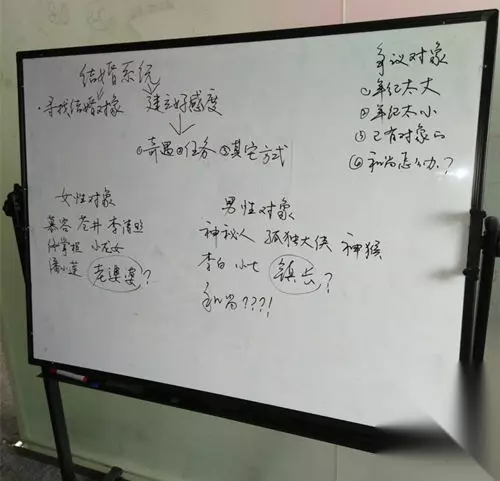 结婚系统
·寻找结婚对象 建立好感度
①奇遇②任务③其它方式
争议对象
①年纪太大
②年纪太小
③已有对象的
④和尚怎么办?
女性对象
慕容 苍井 李清照
掌柜 小龙女
潘小莲 老婆婆?
男性对象
神秘人 孤独大侠 神猴
李白 小七 镇长?
和尚????!